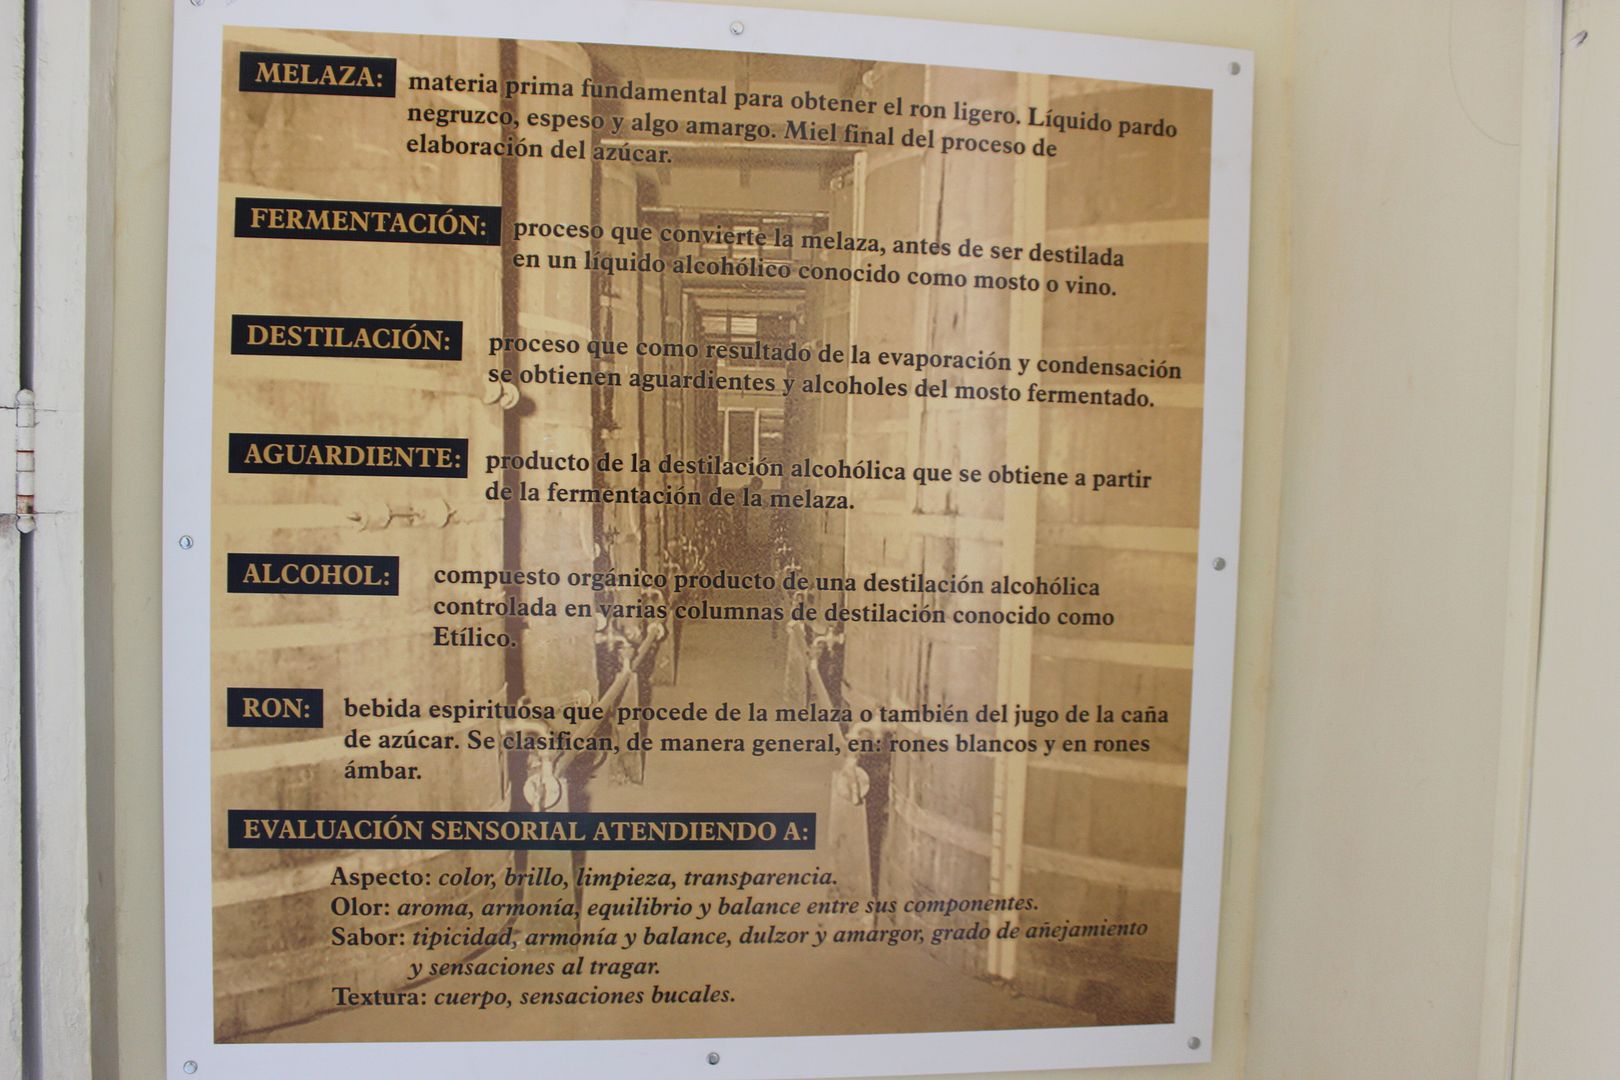 MELAZA: materia prima fundamental para obtener el ron ligero. Líquido pardo
negruzco, espeso y algo amargo. Miel final del proceso de
elaboración del azúcar.
FERMENTACIÓN: proceso que convierte la melaza, antes de ser destilada
en un líquido alcohólico conocido como mosto o vino.
DESTILACIÓN: proceso que como resultado de la evaporación y condensación
se obtienen aguardientes y alcoholes del mosto fermentado.
AGUARDIENTE: producto de la destilación alcohólica que se obtiene a partir
de la fermentación de la melaza.
ALCOHOL: compuesto orgánico producto de una destilación alcohólica
controlada en varias columnas de destilación conocido como
Etílico.
RON: bebida espirituosa que procede de la melaza o también del jugo de la caña
de azúcar. Se clasifican, de manera general, en: rones blancos y en rones
ámbar.
EVALUACIÓN SENSORIAL ATENDIENDO A:
Aspecto: color, brillo, limpieza, transparencia.
Olor: aroma, armonía, equilibrio y balance entre sus componentes.
Sabor: tipicidad, armonía y balance, dulzor y amargor, grado de añejamiento
y sensaciones al tragar.
Textura: cuerpo, sensaciones bucales.